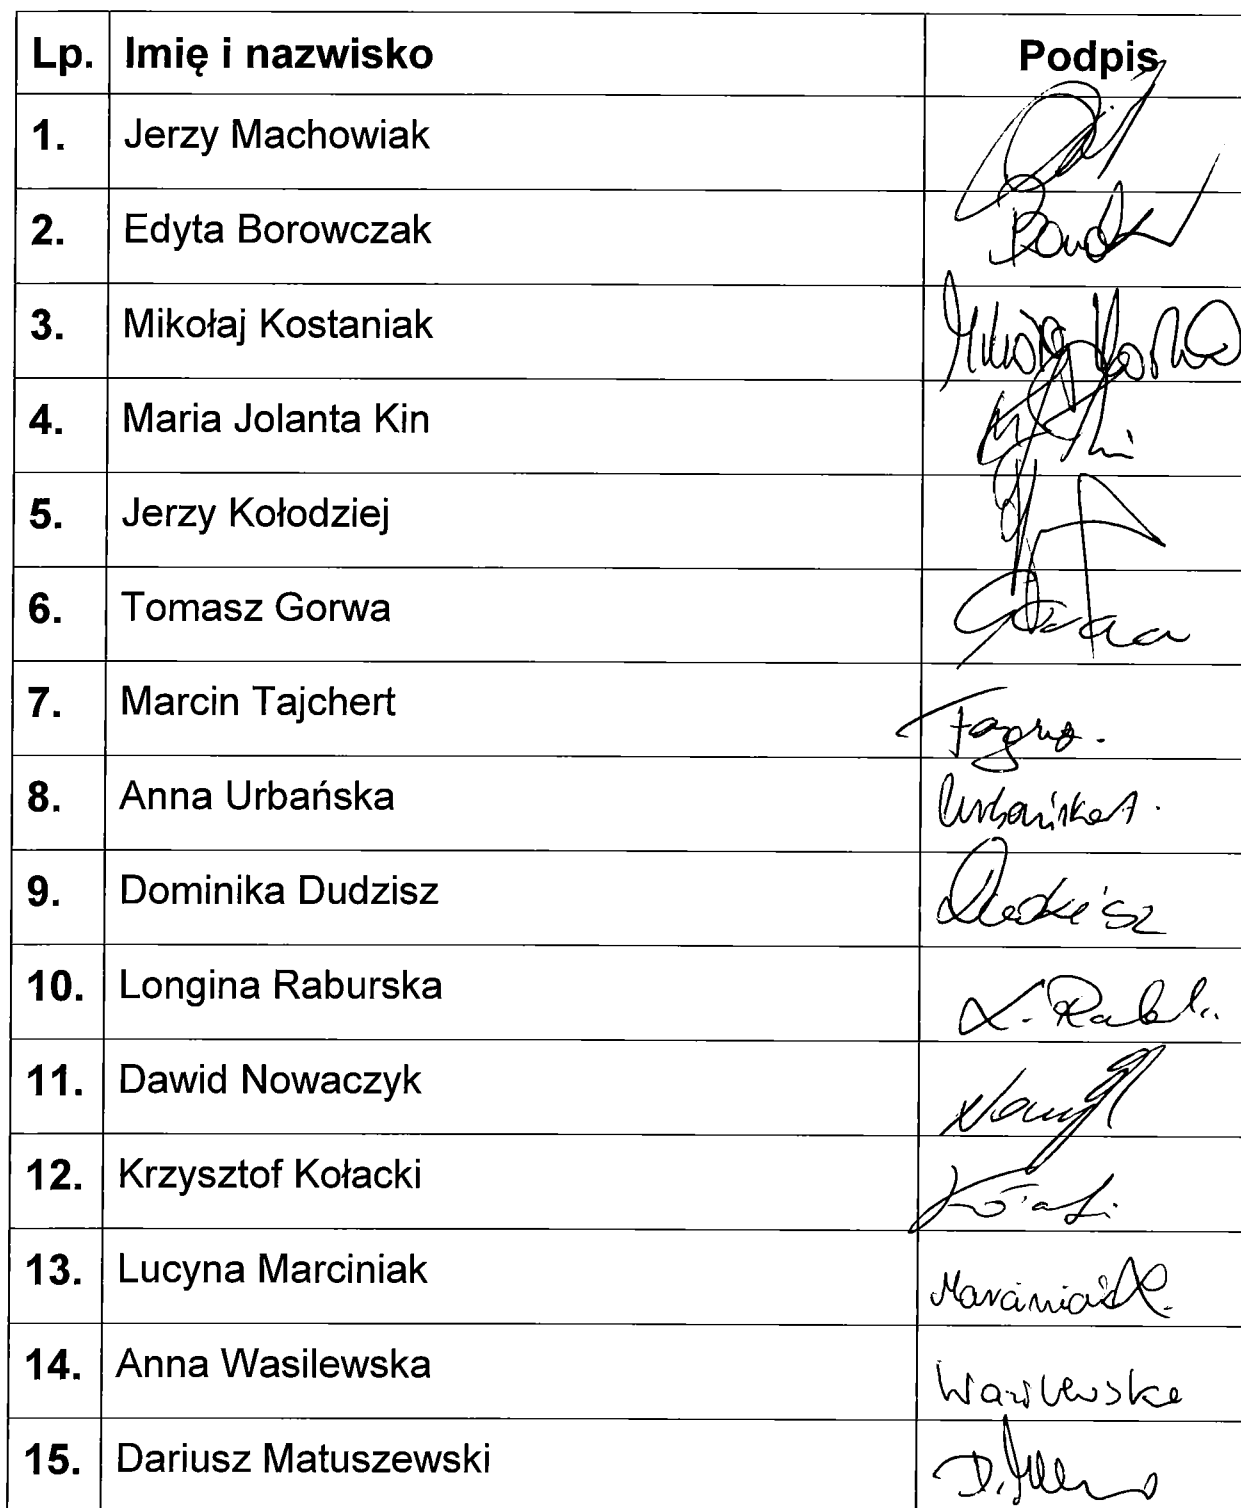 Lp. Imię i nazwisko Podpis
1. Jerzy Machowiak
2. Edyta Borowczak
3. Mikołaj Kostaniak
4. Maria Jolanta Kin
5. Jerzy Kołodziej
6. Tomasz Gorwa
7. Marcin Tajchert
8. Anna Urbańska Urbańska A.
9. Dominika Dudzisz
10. Longina Raburska
11. Dawid Nowaczyk
12. Krzysztof Kołacki
13. Lucyna Marciniak Marciniak
14. Anna Wasilewska Wasilewska
15. Dariusz Matuszewski